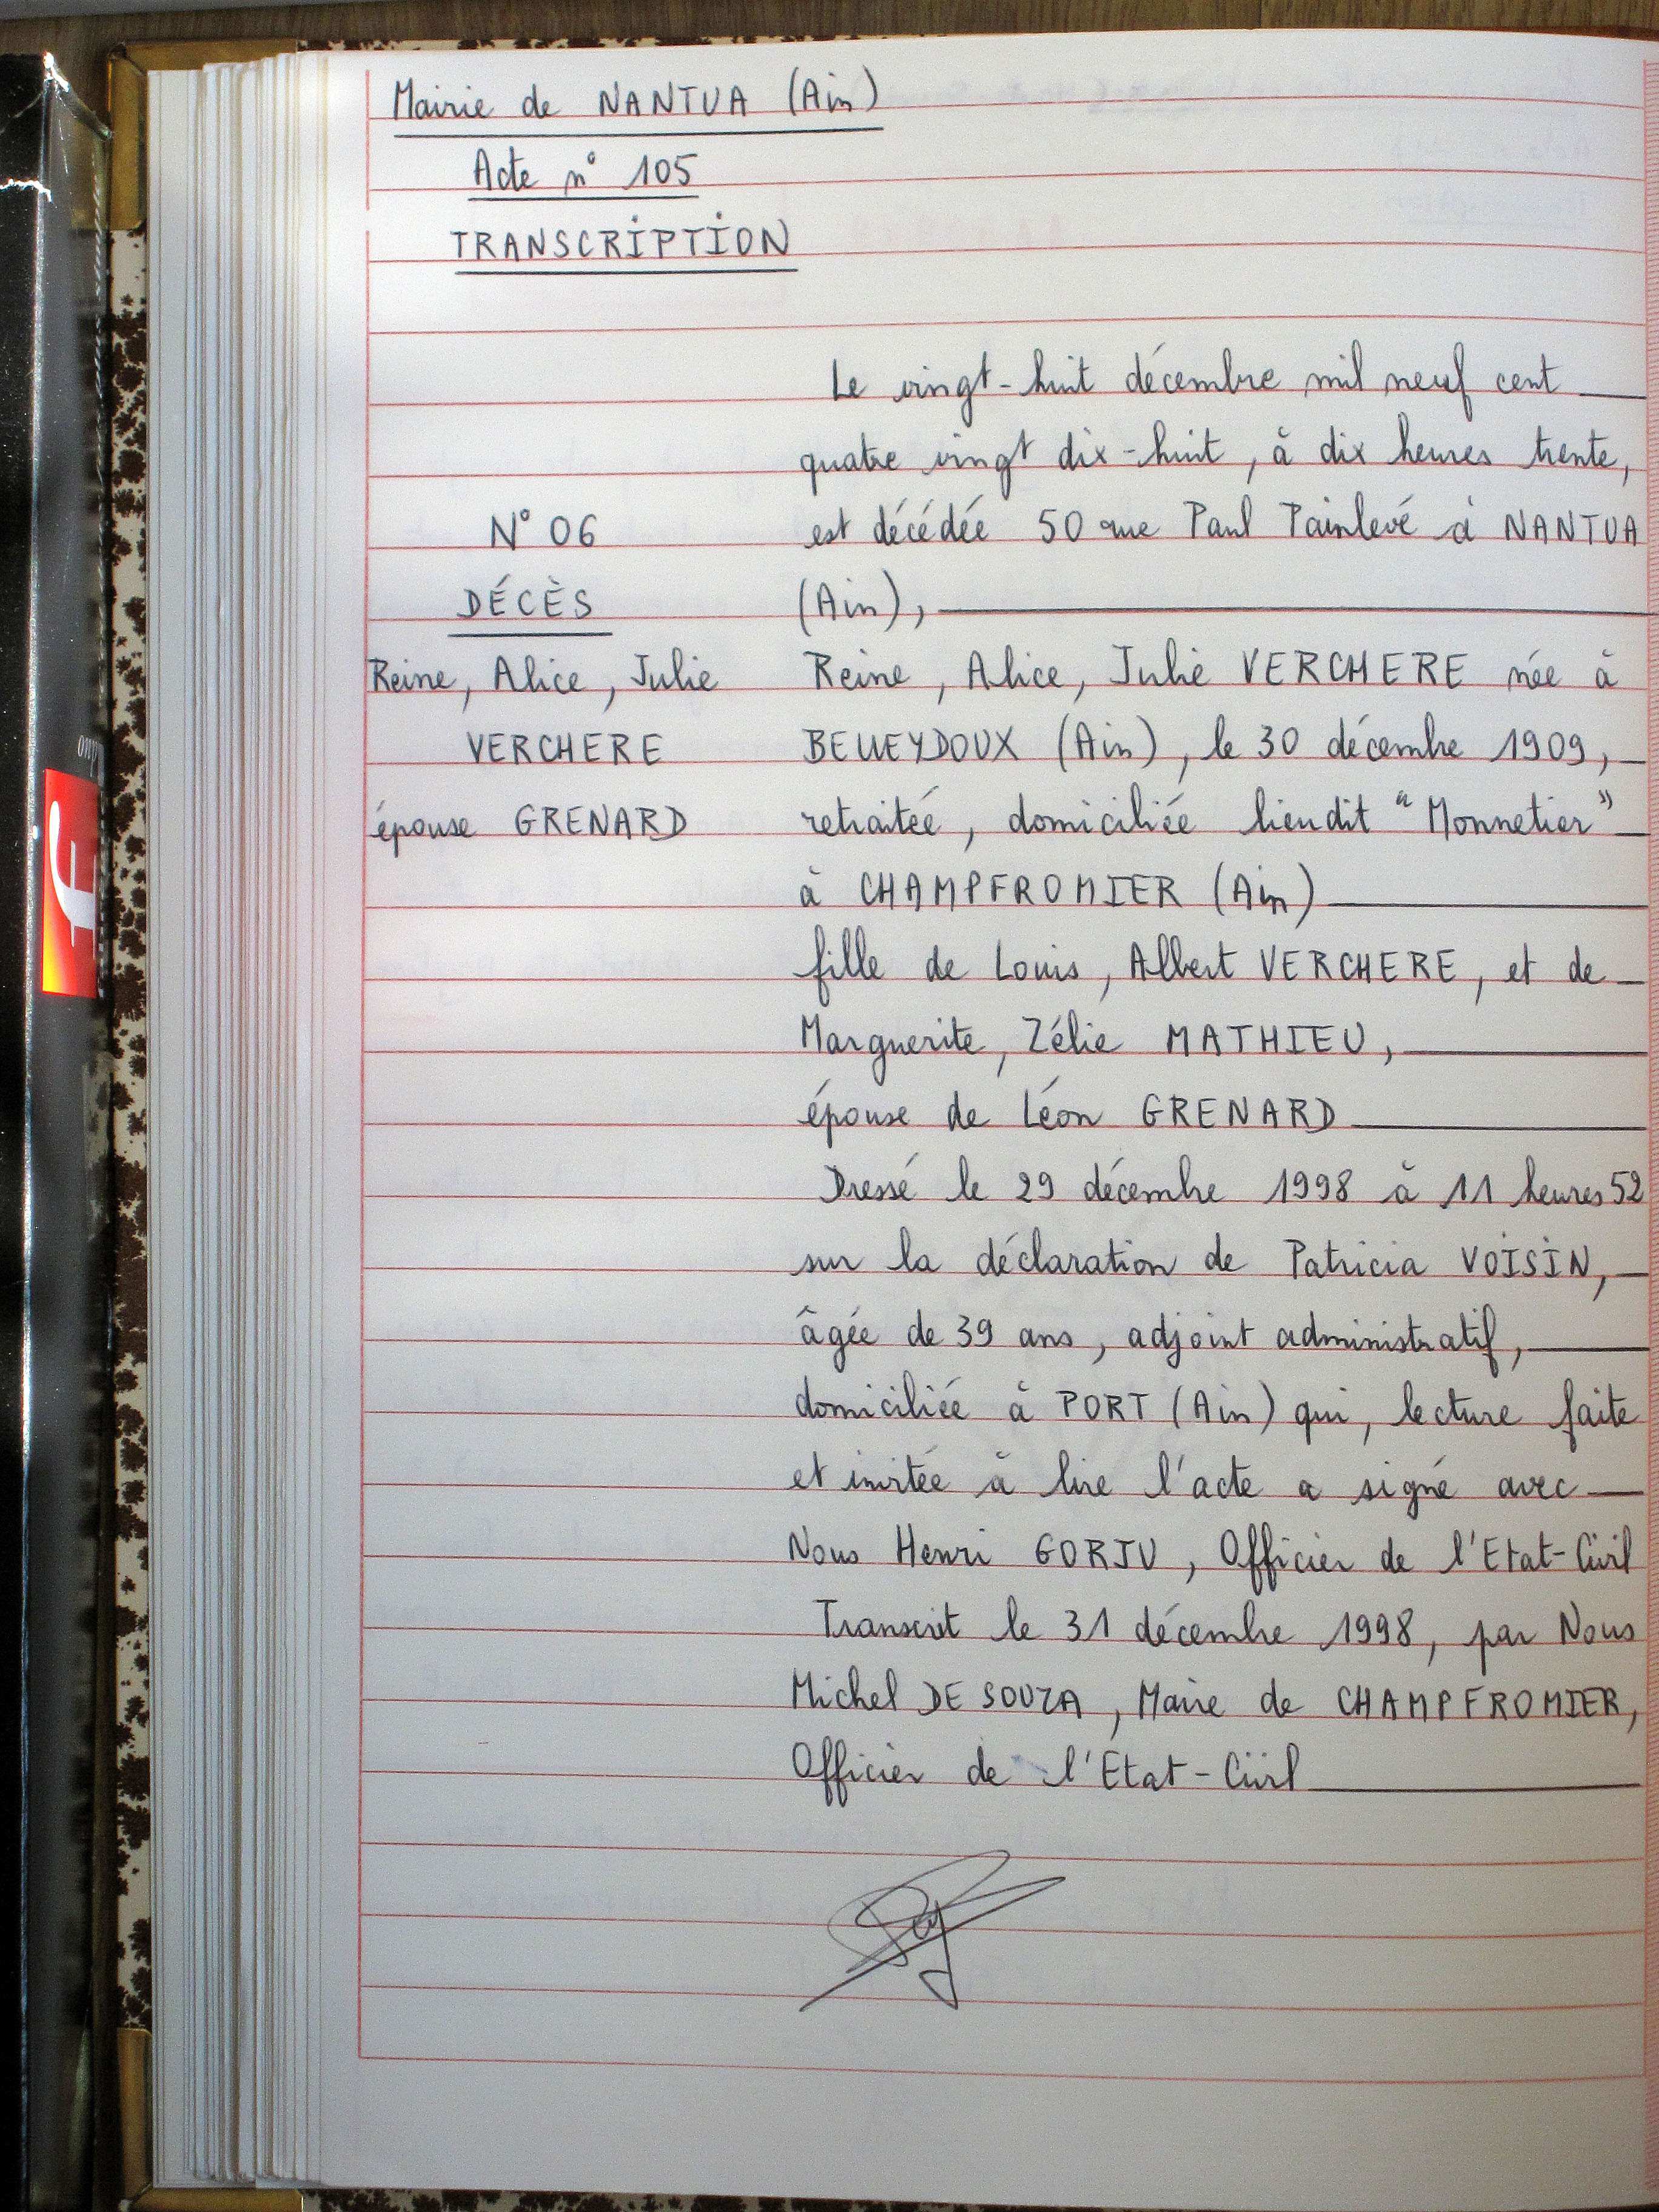 Mairie de NANTUA (Ain)
Acte n° 105
TRANSCRIPTION
Le vingt-huit décembre mil neuf cent
quatre vingt dix-huit, à dix heures trente,
N° 06
est décédée 50 rue Paul Painlevé à NANTUA
DÉCÈS
(Ain),
Reine, Alice, Julie
Reine, Alice, Julie VERCHERE née à
VERCHERE
BELLEYDOUX (Ain), le 30 décembre 1909,
épouse GRENARD
retraitée, domiciliée lieudit "Monnetier"
à CHAMPFROMIER (Ain)
fille de Louis, Albert VERCHERE, et de
Marguerite, Zélie MATHIEU,
épouse de Léon GRENARD
Dressé le 29 décembre 1998 à 11 heures 52
sur la déclaration de Patricia VOISIN,
âgée de 39 ans, adjoint administratif,
domiciliée à PORT (Ain) qui, lecture faite
et invitée à lire l'acte a signé avec
Nous Henri GORJU, Officier de l'Etat-Civil
Transcrit le 31 décembre 1998, par Nous
Michel DE SOUZA, Maire de CHAMPFROMIER,
Officier de l'État-Civil